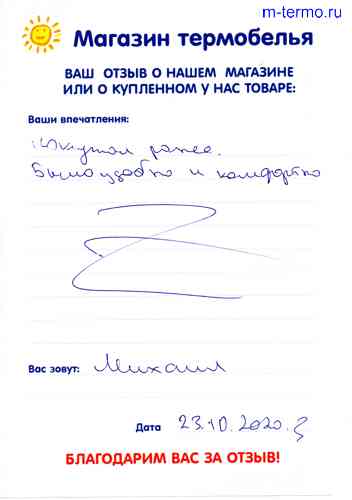 m-termo.ru
Магазин термобелья
ВАШ ОТЗЫВ О НАШЕМ МАГАЗИНЕ
ИЛИ О КУПЛЕННОМ У НАС ТОВАРЕ:
Ваши впечатления:
Покупал ранее.
Было удобно и комфортно
Вас зовут: Михаил
Дата 23.10.2020
БЛАГОДАРИМ ВАС ЗА ОТЗЫВ!